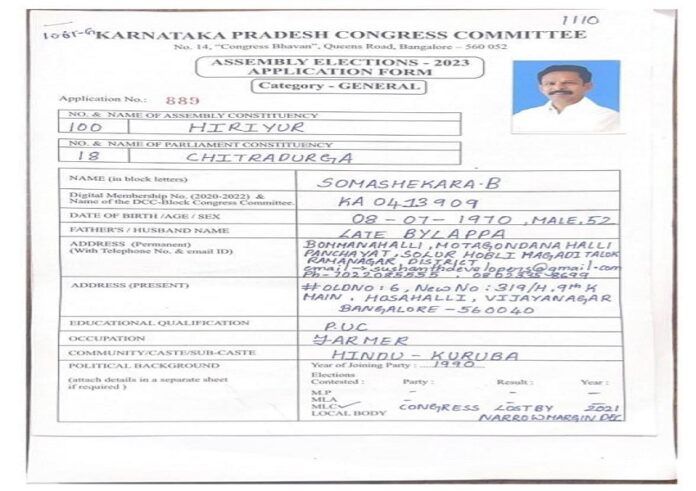 1110
1061-G KARNATAKA PRADESH CONGRESS COMMITTEE
No. 14, "Congress Bhavan", Queens Road, Bangalore – 560 052
ASSEMBLY ELECTIONS - 2023
APPLICATION FORM
Category - GENERAL
Application No.: 889
NO. & NAME OF ASSEMBLY CONSTITUENCY
100 HIRIYUR
NO. & NAME OF PARLIAMENT CONSTITUENCY
18 CHITRADURGA
NAME (in block letters) SOMASHEKARA·B
Digital Membership No. (2020-2022) &
Name of the DCC-Block Congress Committee. KA 0413909
DATE OF BIRTH /AGE / SEX 08-07-1970, MALE, 52
FATHER'S / HUSBAND NAME LATE BYLAPPA
ADDRESS (Permanent) BOMMANAHALLI, MOTAGONDANAHALLI
(With Telephone No. & email ID) PANCHAYAT, SOLUR HOBLI MAGADI TALUK
RAMANAGAR DISTRICT
email → sushanthdevelopers@gmail.com
Ph-7022085555,
ADDRESS (PRESENT) #OLDNO: 6, New No: 319/H, 9th K
MAIN, HOSAHALLI, VIJAYANAGAR
BANGALORE-560040
EDUCATIONAL QUALIFICATION P.U.C
OCCUPATION FARMER
COMMUNITY/CASTE/SUB-CASTE HINDU - KURUBA
POLITICAL BACKGROUND Year of Joining Party : 1990
(attach details in a separate sheet
if required )
Elections
Contested : Party : Result : Year :
M.P – – –
MLA – – –
MLC ✓ CONGRESS LOST BY 2021
LOCAL BODY NARROW MARGIN DEC